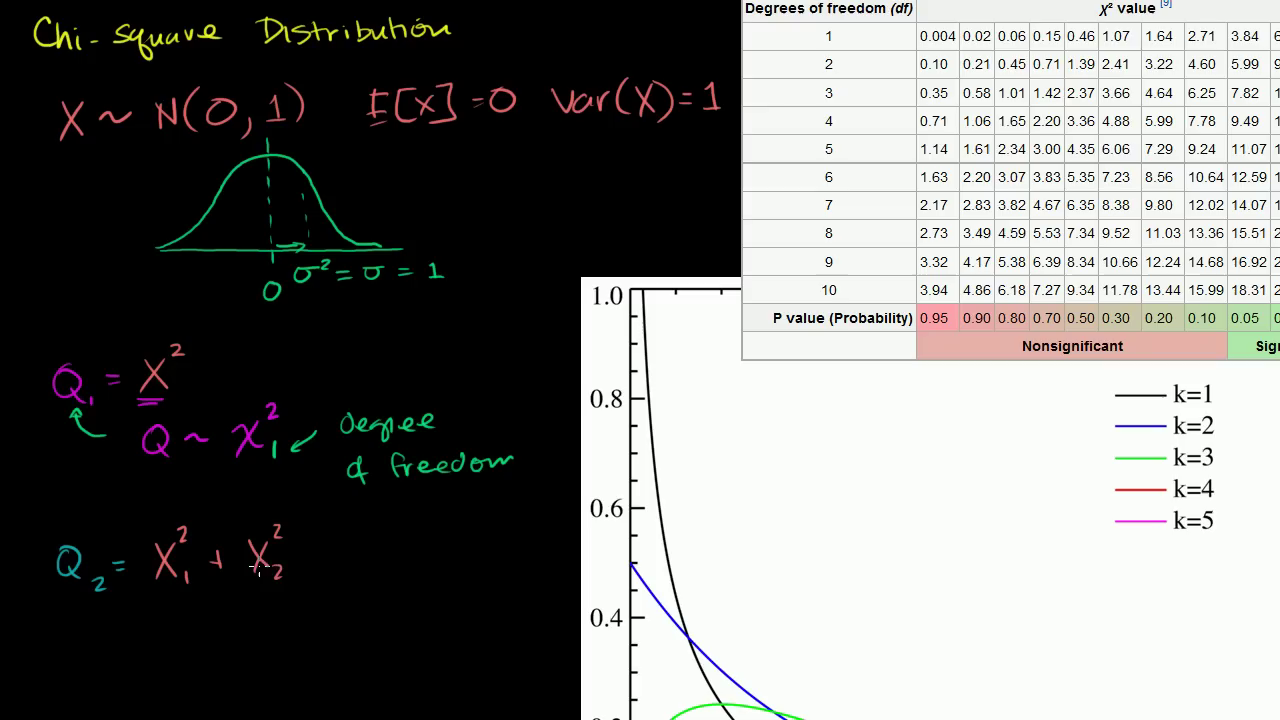 Chi-square Distribution
X ~ N(0, 1) E[X] = 0 Var(X) = 1
σ² = σ = 1
0
Q₁ = X²
Q ~ χ₁² degree
of freedom
Q₂ = X₁² + X₂²
Degrees of freedom (df) χ² value [9]
1 0.004 0.02 0.06 0.15 0.46 1.07 1.64 2.71 3.84 6
2 0.10 0.21 0.45 0.71 1.39 2.41 3.22 4.60 5.99 9
3 0.35 0.58 1.01 1.42 2.37 3.66 4.64 6.25 7.82 1
4 0.71 1.06 1.65 2.20 3.36 4.88 5.99 7.78 9.49 1
5 1.14 1.61 2.34 3.00 4.35 6.06 7.29 9.24 11.07 1
6 1.63 2.20 3.07 3.83 5.35 7.23 8.56 10.64 12.59 1
7 2.17 2.83 3.82 4.67 6.35 8.38 9.80 12.02 14.07 1
8 2.73 3.49 4.59 5.53 7.34 9.52 11.03 13.36 15.51 2
9 3.32 4.17 5.38 6.39 8.34 10.66 12.24 14.68 16.92 2
10 3.94 4.86 6.18 7.27 9.34 11.78 13.44 15.99 18.31 2
P value (Probability) 0.95 0.90 0.80 0.70 0.50 0.30 0.20 0.10 0.05 0
Nonsignificant Sig
1.0
0.8
0.6
0.4
k=1
k=2
k=3
k=4
k=5